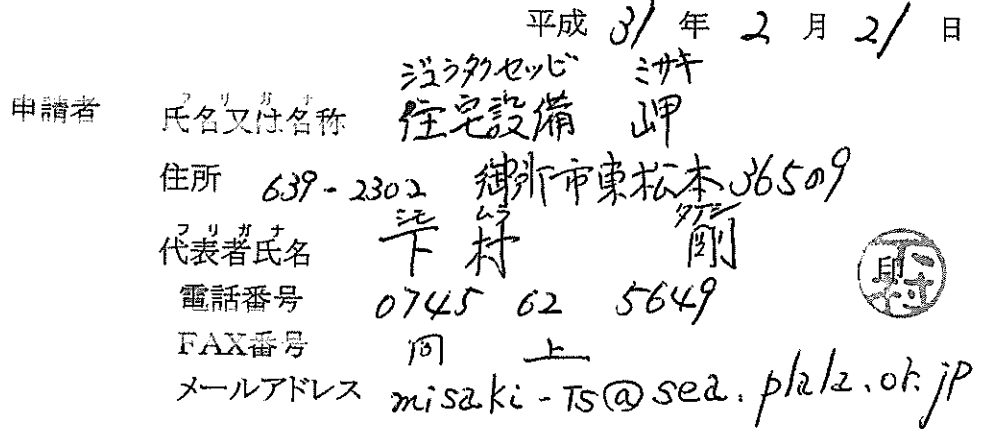 平成 31 年 2 月 21 日
ジュウタクセツビ ミサキ
フリガナ
申請者 氏名又は名称 住宅設備 岬
住所 639-2302 御所市東松本365の9
シモ ムラ タケシ
フリガナ
代表者氏名 下村 剛 印 下村
電話番号 0745 62 5649
FAX番号 同上
メールアドレス misaki-TS@sea.plala.or.jp